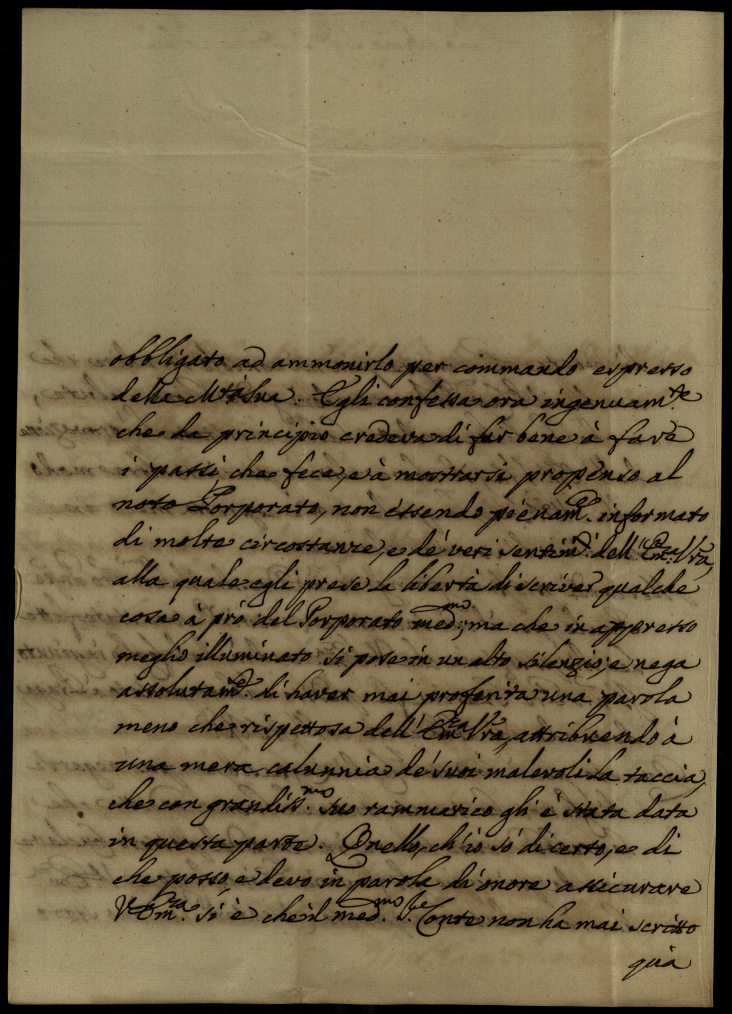 obbligato ad ammonirlo per commando espresso
della Mtà Sua. Egli confessa ora ingenuamte
che da principio credeva di far bene à fare
i passi, che fece, e à mostrarsi propenso al
noto Porporato, non essendo pienamte informato
di molte circostanze, e de' veri sentimti dell' Emza Vra,
alla quale egli prese la libertà di scriver qualche
cosa à prò del Porporato medmo; ma che in appresso
meglio illuminato si pose in un alto silenzio, e nega
assolutamte di haver mai proferita una parola
meno che rispettosa dell' Emza Vra, attribuendo à
una mera calunnia de' suoi malevoli la taccia,
che con grandissmo suo rammarico gli è stata data
in questa parte. Quello, ch' io sò di certo, e di
che posso, e devo in parola di onore assicurare
V. Emza si è che il medmo Sre Conte non ha mai scritto
quà